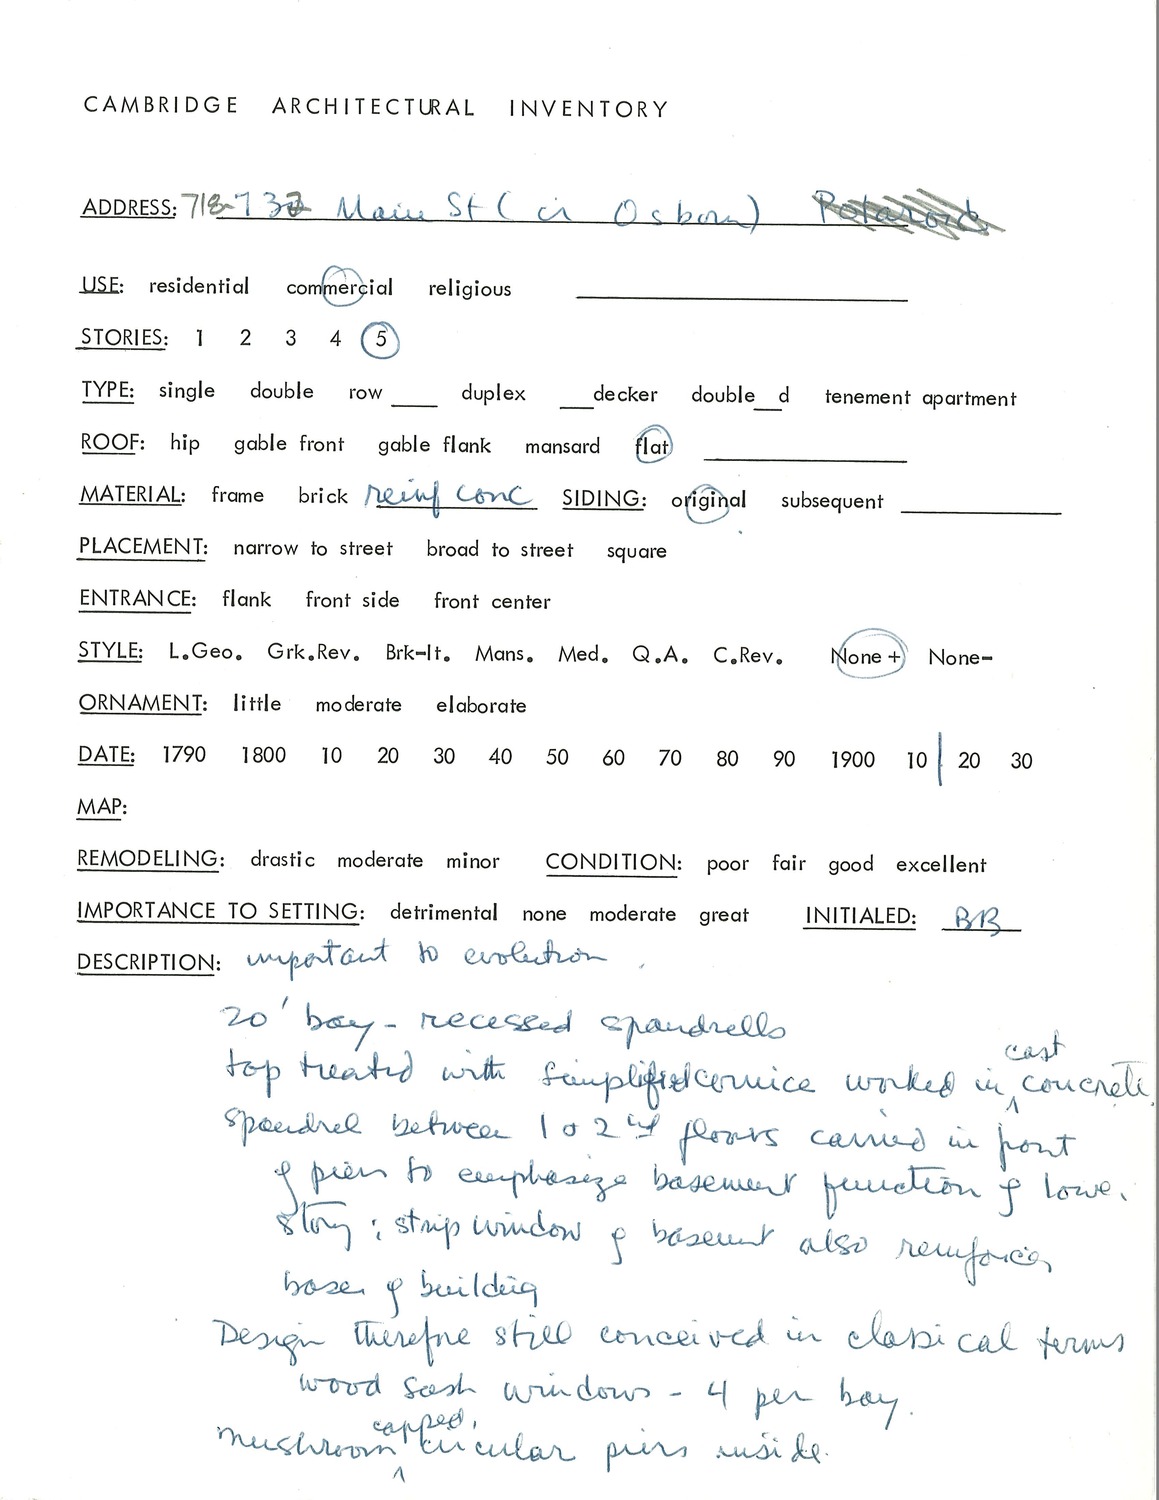 CAMBRIDGE ARCHITECTURAL INVENTORY
ADDRESS: 718-732 Main St ( cr Osborn) Polaroid
USE: residential commercial religious
STORIES: 1 2 3 4 5
TYPE: single double row ____ duplex ___decker double__d tenement apartment
ROOF: hip gable front gable flank mansard flat
MATERIAL: frame brick reinf conc SIDING: original subsequent
PLACEMENT: narrow to street broad to street square
ENTRANCE: flank front side front center
STYLE: L.Geo. Grk.Rev. Brk-It. Mans. Med. Q.A. C.Rev. None + None-
ORNAMENT: little moderate elaborate
DATE: 1790 1800 10 20 30 40 50 60 70 80 90 1900 10 | 20 30
MAP:
REMODELING: drastic moderate minor CONDITION: poor fair good excellent
IMPORTANCE TO SETTING: detrimental none moderate great INITIALED: BB
DESCRIPTION: important to evolution
20' bay - recessed spandrells
top treated with simplified cornice worked in cast concrete
spandrel between 1 & 2nd floors carried in front
of piers to emphasize basement function of lower
story; strip window of basement also reinforces
base of building
Design therefore still conceived in classical terms
wood sash windows - 4 per bay.
mushroom capped circular piers inside.